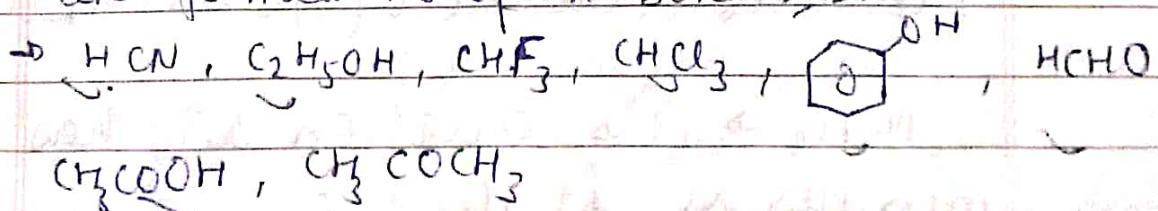 → HCN, C₂H₅OH, CHF₃, CHCl₃, OH, HCHO
CH₃COOH, CH₃COCH₃